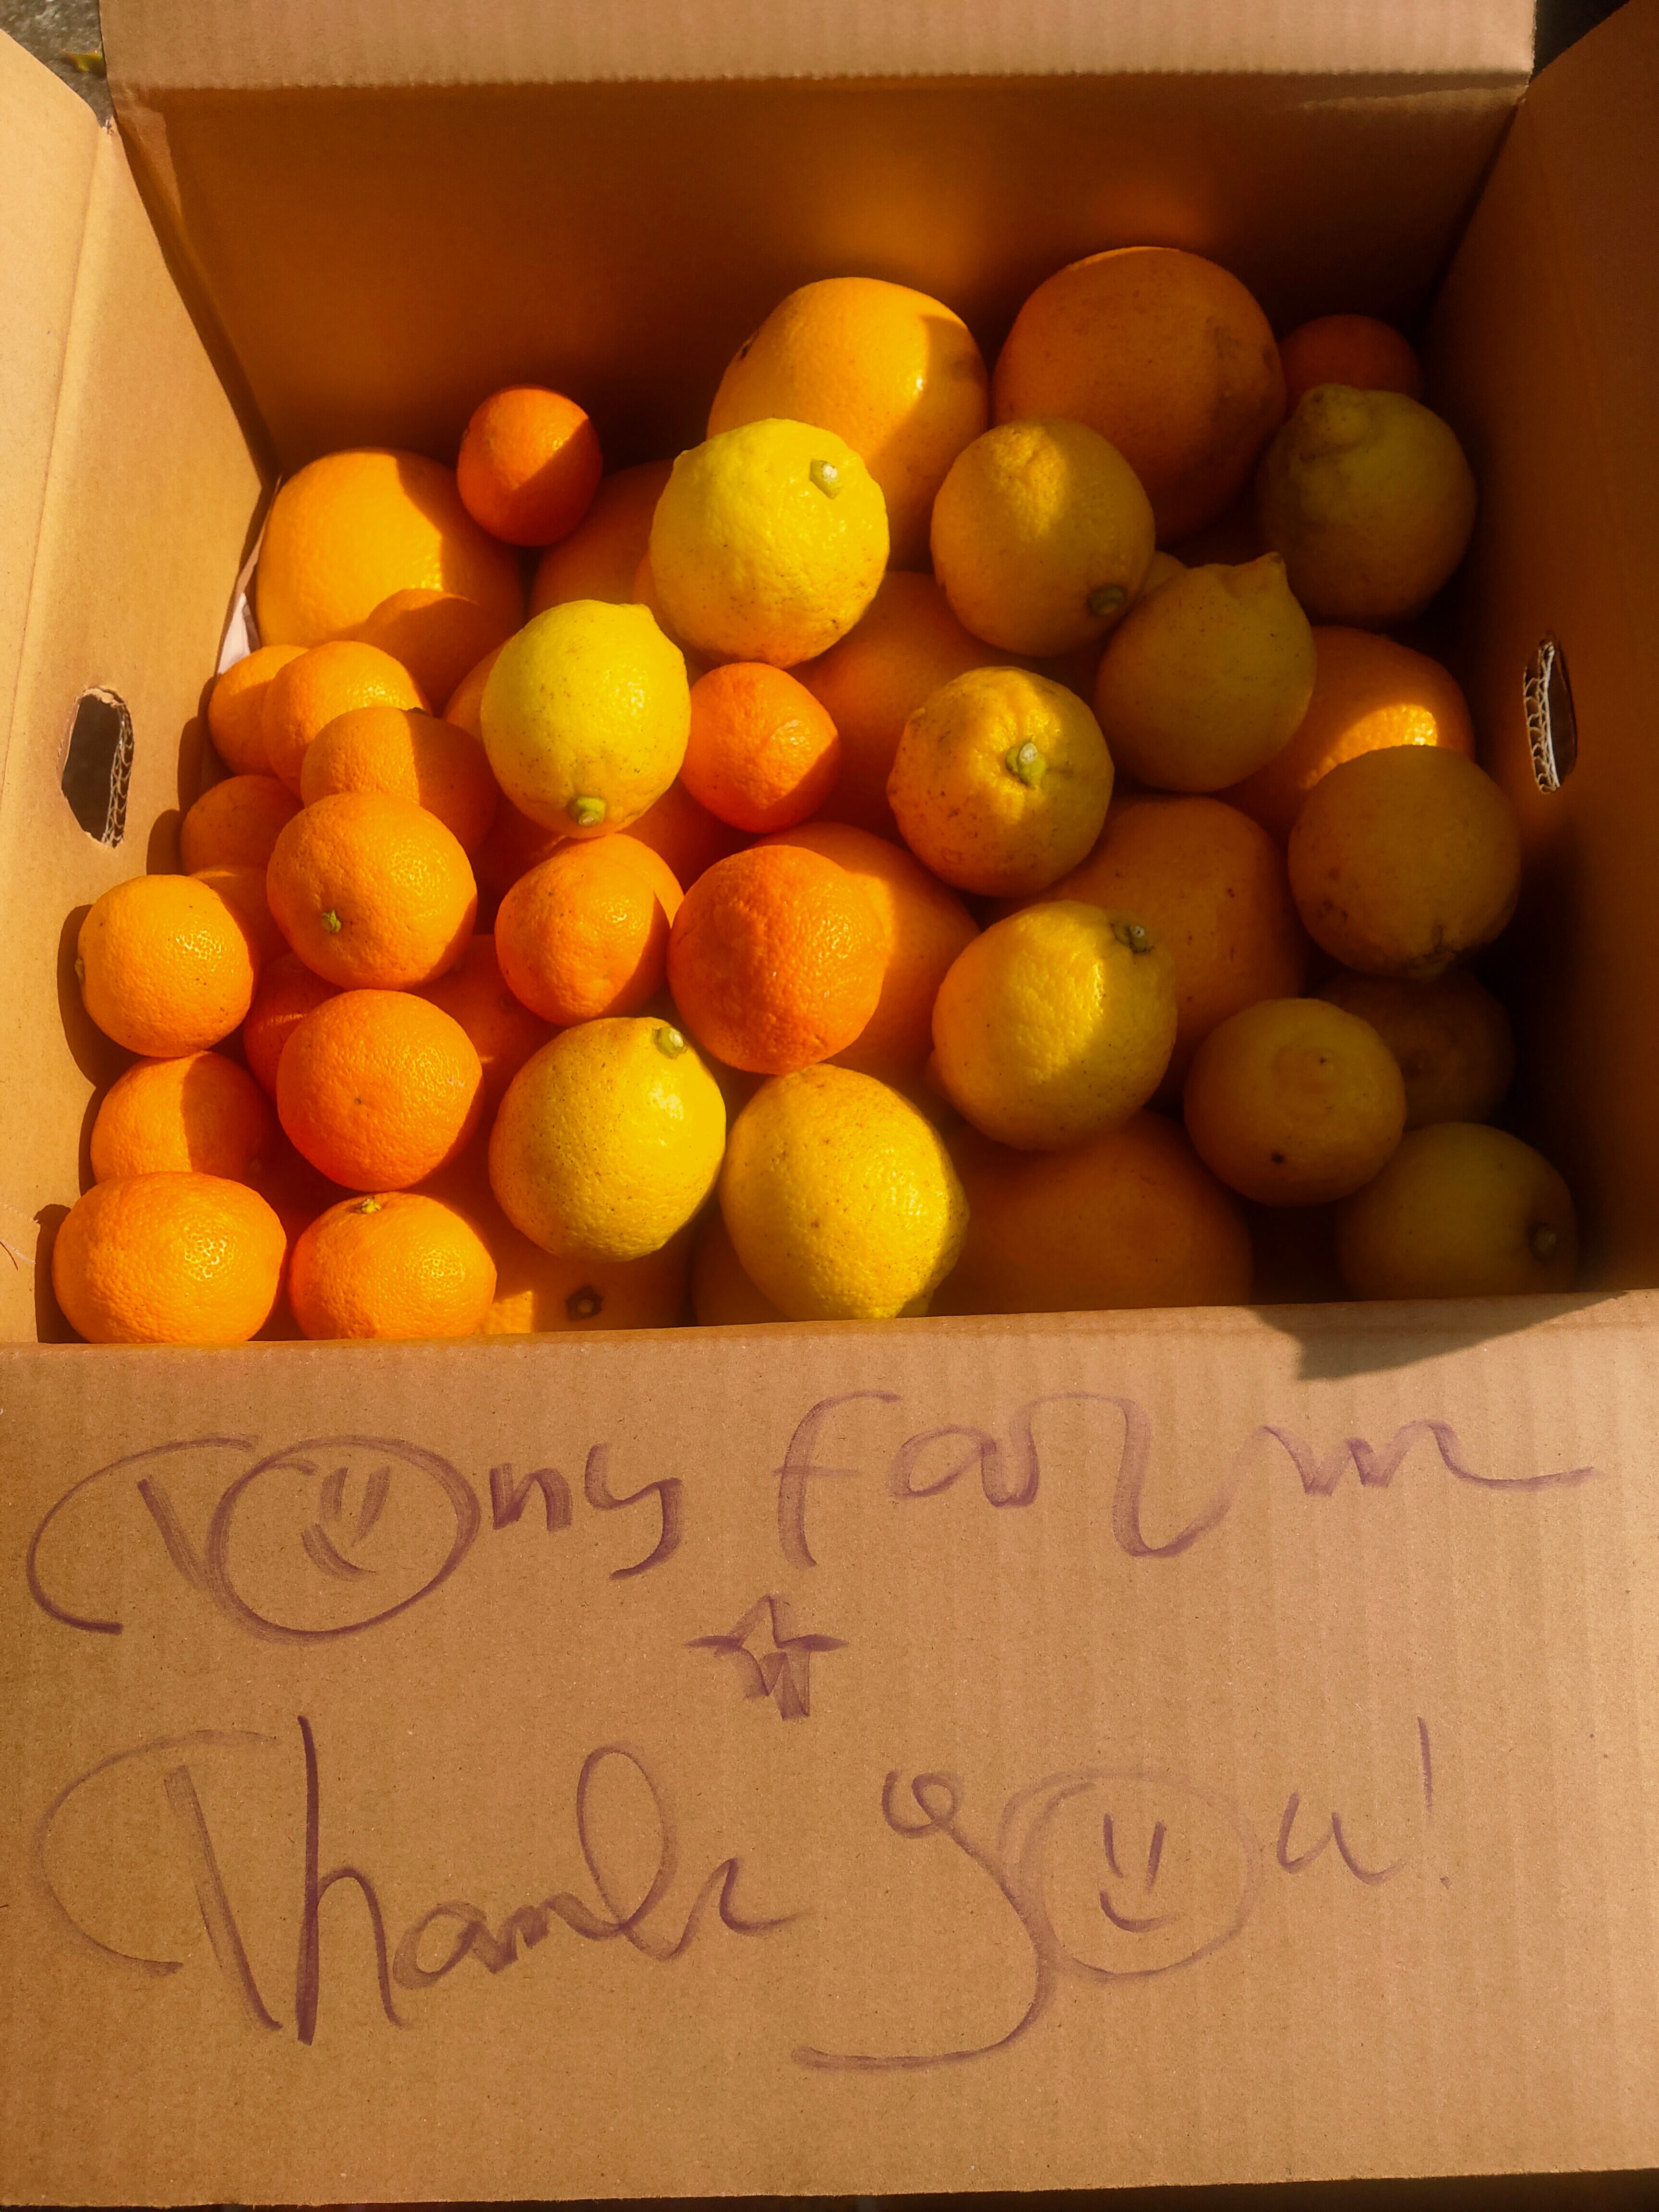 Tony farm
Thank you!